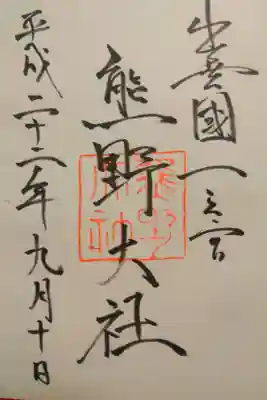 出雲國一之宮
熊野大社
平成二十二年九月十日